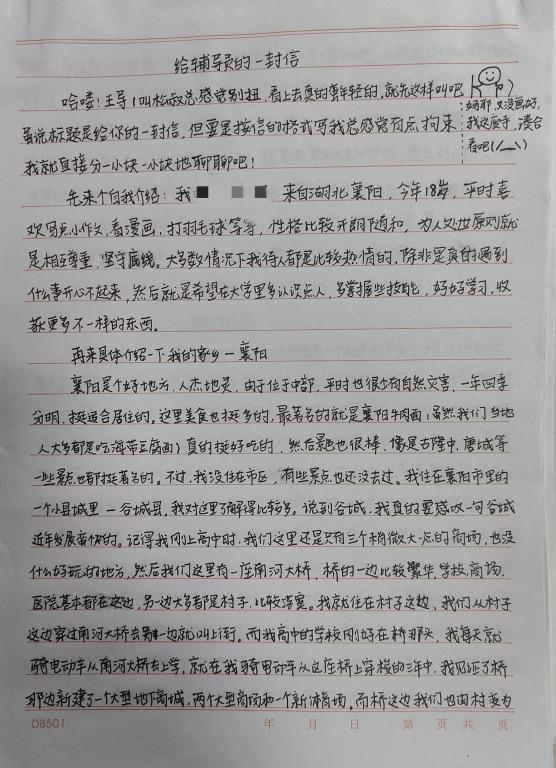 给辅导员的一封信
哈喽!王导(叫松叔总感觉别扭,看上去真的蛮年轻的,就先这样叫吧
妈耶,又没画好,
我这废手,凑合
看吧
虽说标题是给你的一封信,但要是按信的格式写我总感觉有点拘束
我就直接分一小块一小块地聊聊吧!
先来个自我介绍:我 来自湖北襄阳,今年18岁,平时喜
欢写点小作文,看漫画,打羽毛球等等,性格比较开朗随和,为人处世原则就
是相互尊重,坚守底线。大多数情况下我待人都是比较热情的,除非是真的遇到
什么事开心不起来,然后就是希望在大学里多认识点人,多掌握些技能,好好学习,收
获更多不一样的东西。
再来具体介绍一下我的家乡一襄阳
襄阳是个好地方,人杰地灵,由于位于中部,平时也很少有自然灾害,一年四季
分明,挺适合居住的。这里美食也挺多的,最著名的就是襄阳牛肉面(虽然我们当地
人大多都是吃海带豆腐面)真的挺好吃的,然后景色也很棒,像是古隆中,唐城等
一些景点也都挺著名的。不过,我没住在市区,有些景点也还没去过。我住在襄阳市里的
一个小县城里一谷城县,我对这里了解得比较多。说到谷城,我真的要感叹一句谷城
近年发展蛮快的。记得我刚上高中时,我们这里还是只有三个稍微大一点的商场,也没
什么好玩的地方,然后我们这里有一座南河大桥,桥的一边比较繁华,学校,商场,
医院基本都在这边,另一边大多都是村子,比较落寞。我就住在村子这边,我们从村子
这边穿过南河大桥去另一边就叫上街。而我高中的学校刚好在桥那头,我每天就
骑电动车从南河大桥去上学,就在我骑电动车从这座桥上穿梭的三年中,我见证了桥
那边新建了一个大型地下商城,两个大型商场和一个新体商场。而桥这边我们也由村变为
DB501 年 月 日 第 页 共 页